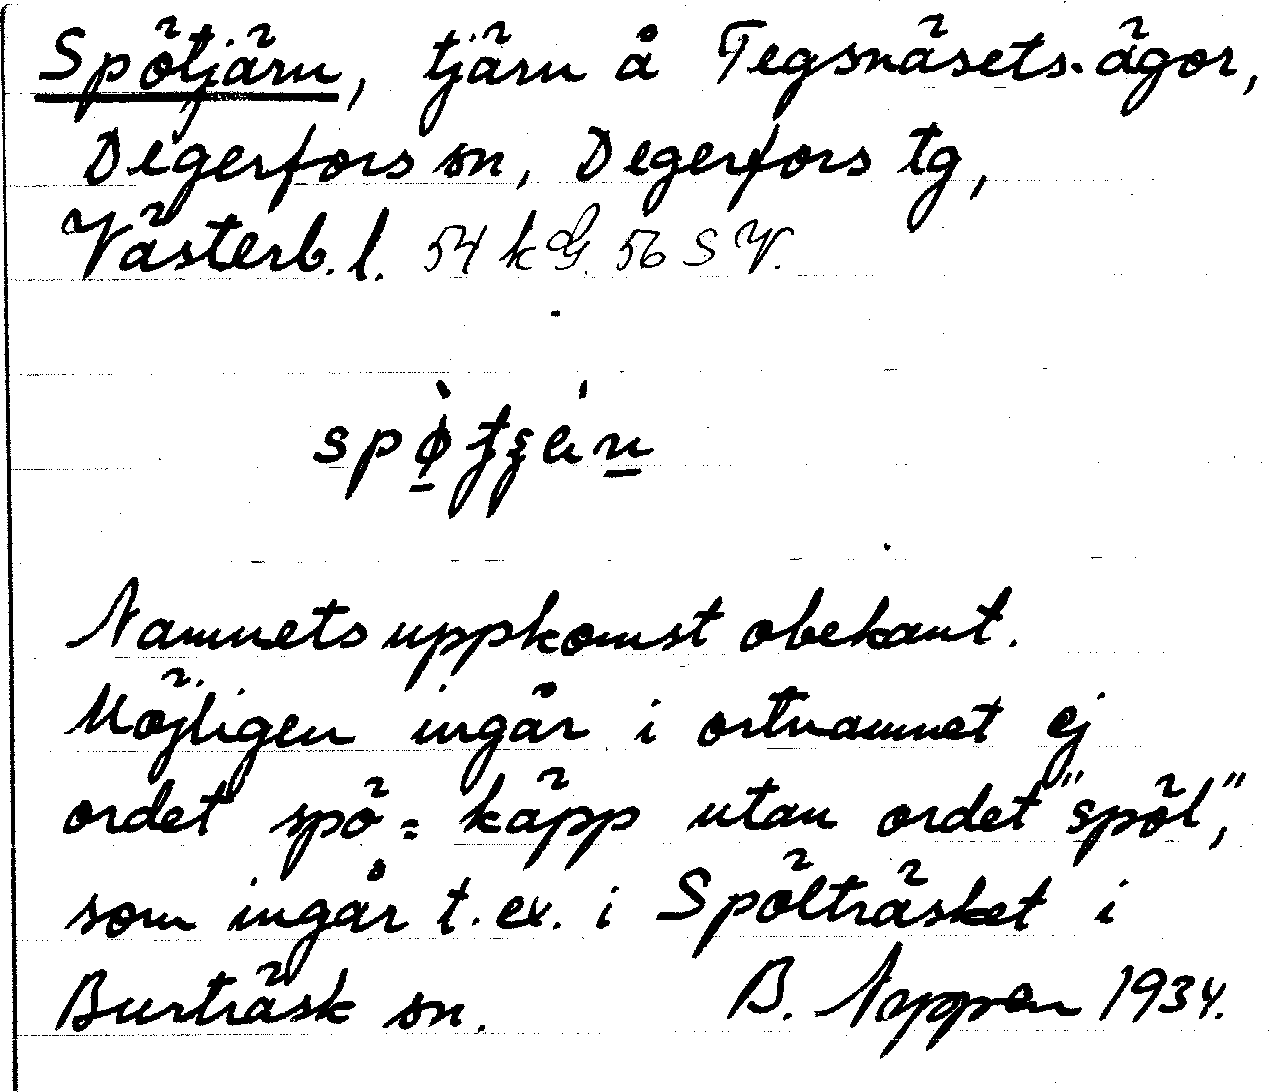 Spötjärn, tjärn å Tegsnäsets ägor,
Degerfors sn, Degerfors tg,
Västerb. l. 54 k G. 56 S V.
Namnets uppkomst obekant.
Möjligen ingår i ortnamnet ej
ordet spö = käpp utan ordet "spöl",
som ingår t. ex. i Spölträsket i
Burträsk sn. B. 1934.